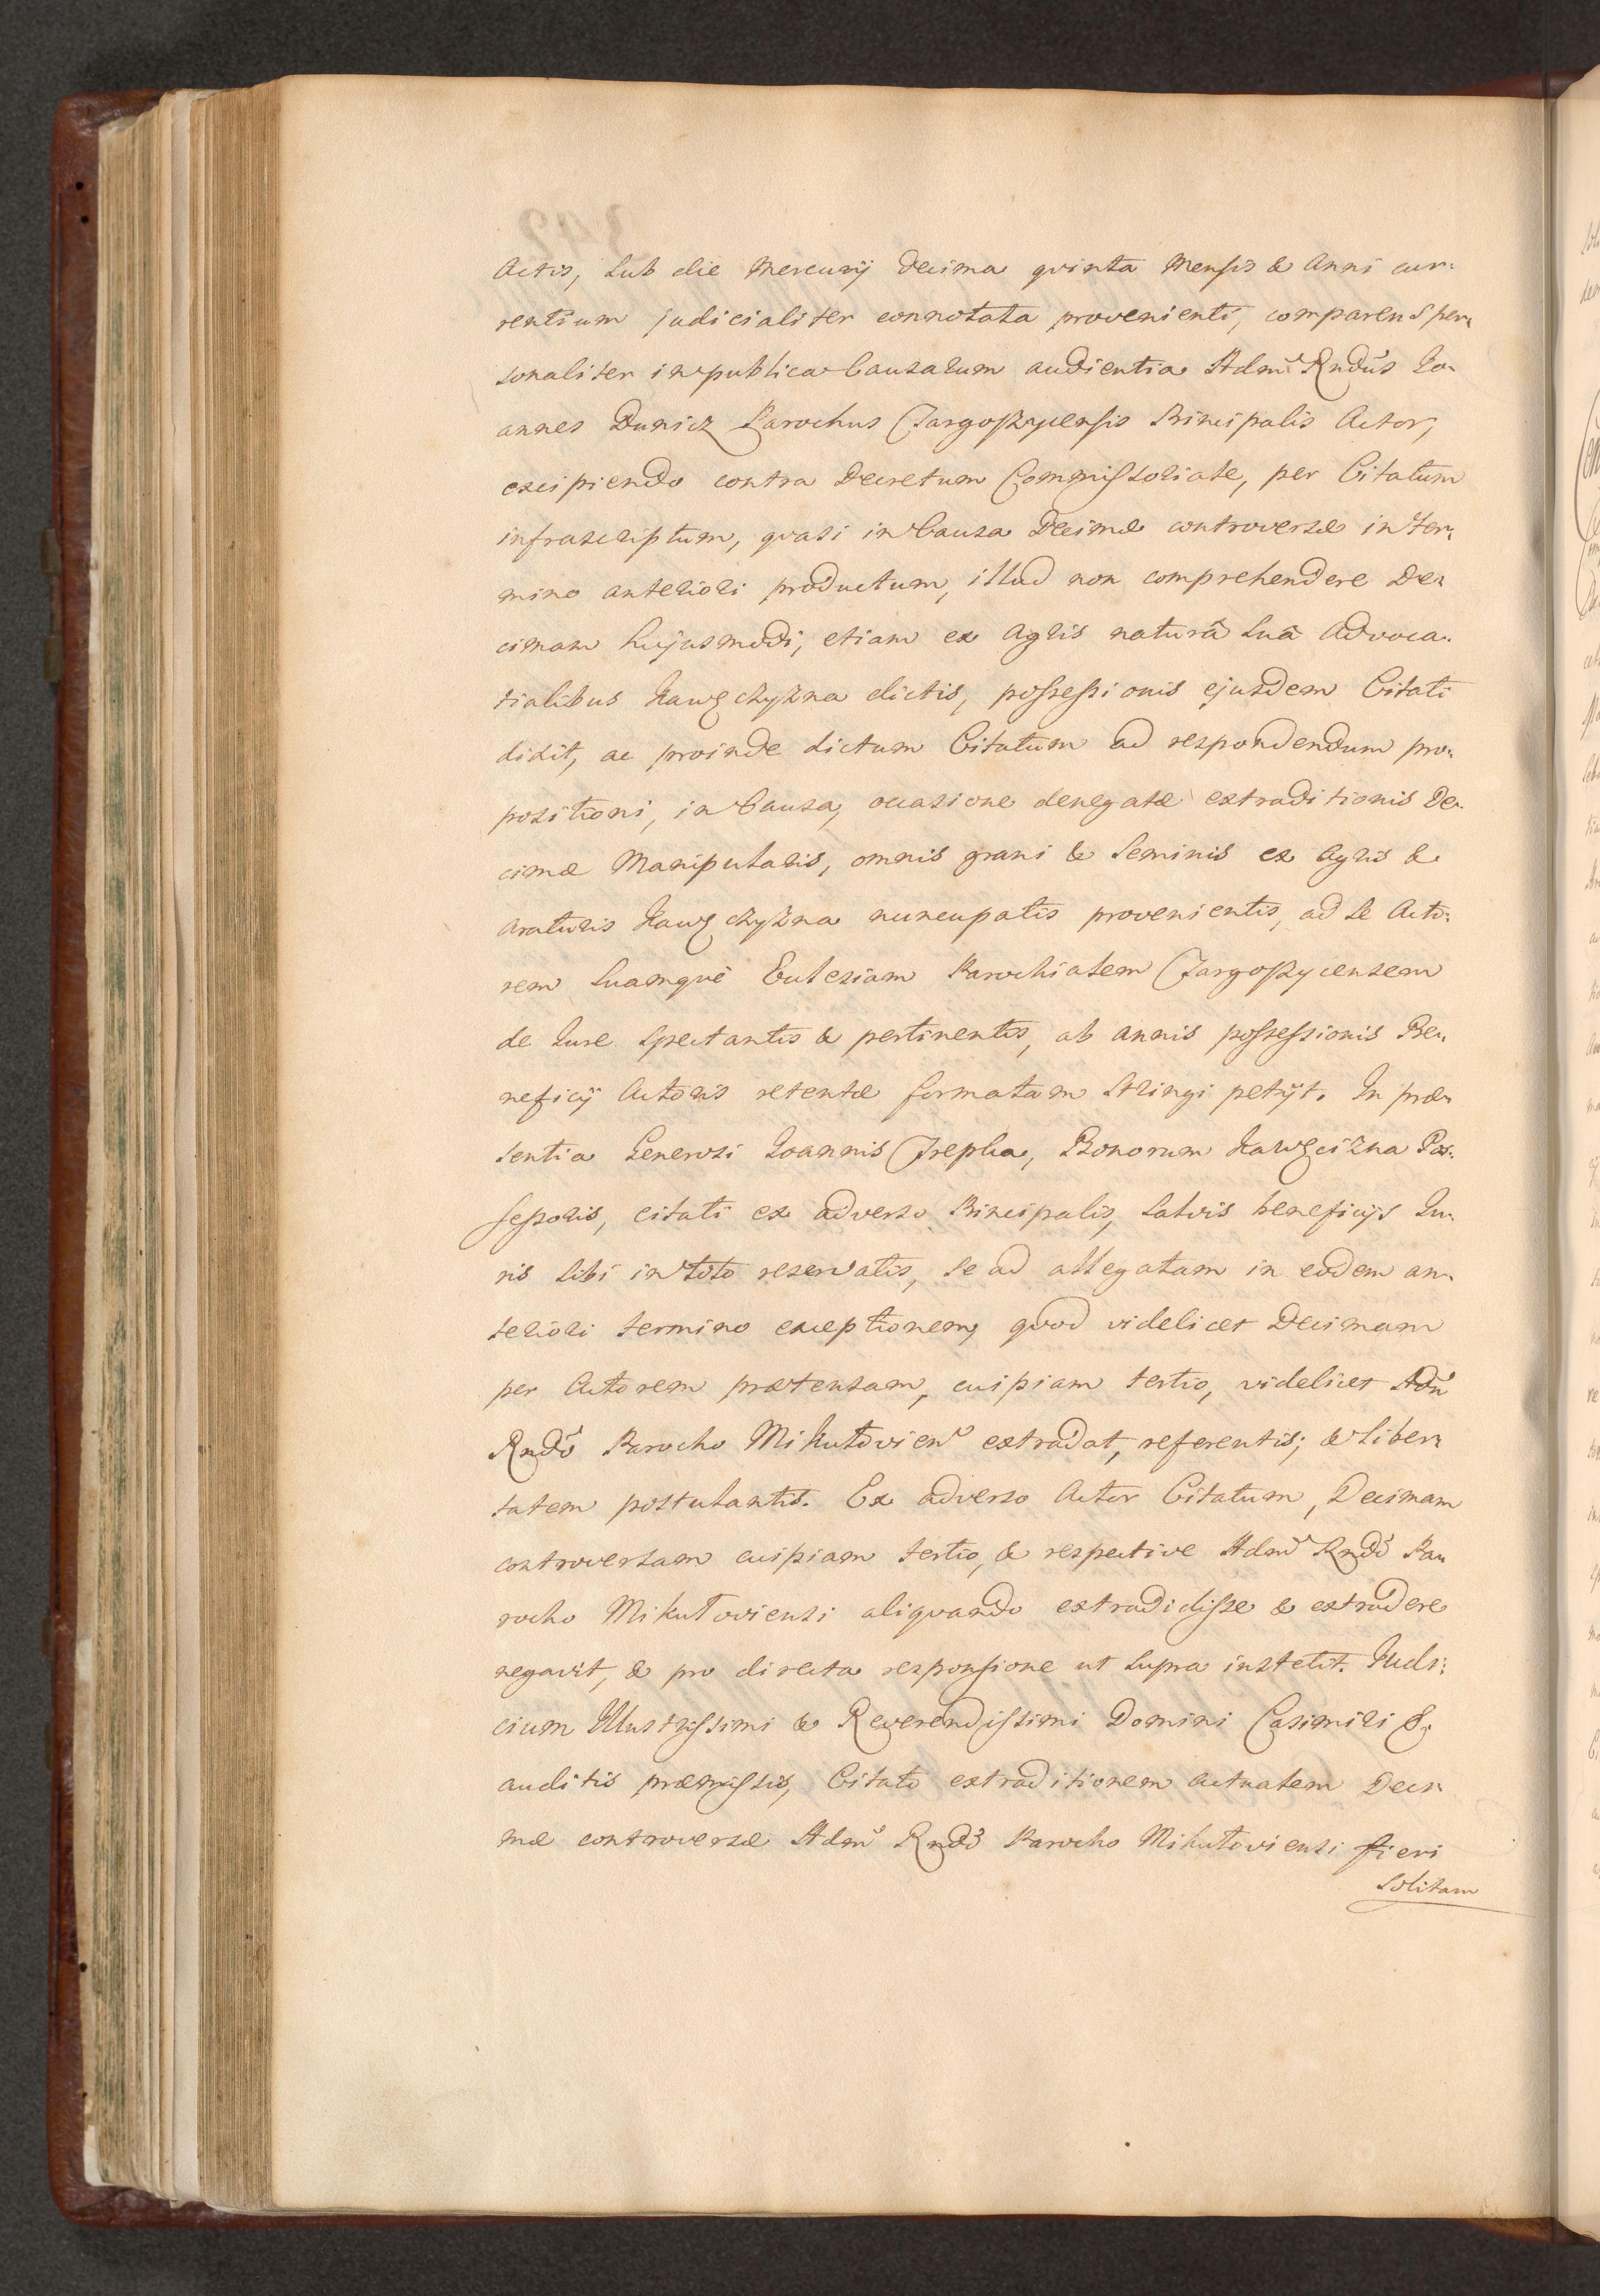 Actis, Sub die Mercurij Decima quinta Mensis & Anni cur:
rentium judicialiter connotata provenienti, comparens per:
sonaliter in publica Causarum audientia Adm Rndus Jo:
annes Dunicz Parochus Targoszycensis Principalis Actor,
excipiendo contra Decretum Commissoriale, per Citatum
infrascriptum, quasi in Causa Decimæ controversæ in Ter:
mino anteriori productum, illud non comprehendere De:
cimam hujusmodi, etiam ex Agris naturâ Suâ Advoca:
tialibus dictis, possessionis ejusdem Citati
dixit, ac proinde dictum Citatum ad respondendum pro:
positioni, in Causa, occasione denegatæ extraditionis De:
cimæ Manipularis, omnis grani & Seminis ex Agris &
Araturis nuncupatis provenientis, ad Se Acto:
rem Suamque Ecclesiam Parochialem Targoszycensem
de Jure Spectantis & pertinentis, ab annis possessionis Be:
neficij Actoris retentæ formatam Stringi petijt. In præ:
sentia Generosi Joannis Trepka, Bonorum Pos:
sessoris, citati ex adverso Principalis, Salvis beneficijs Ju:
ris Sibi in toto reservatis, Se ad allegatam in eodem an:
teriori termino exceptionem, quod videlicet Decimam
per Actorem prætensam, cuipiam tertio, videlicet Adm
Rndo Parocho Mikulovien extradat, referentis; & Liber:
tatem postulantis. Ex adverso Actor Citatum, Decimam
controversam cuipiam tertio, & respective Adm Rndo Pa:
rocho Mikuloviensi aliquando extradidisse & extradere
negavit, & pro directa responsione ut Supra institit. Judi:
cium Illustrissimi & Reverendissimi Domini Casimiri &
auditis præmissis, Citato extraditionem actualem Deci:
mæ controversæ Adm Rndo Parocho Mikuloviensi fieri
Solitam